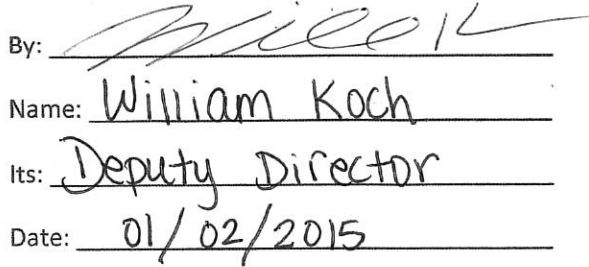 By: Will K
Name: William Koch
Its: Deputy Director
Date: 01/02/2015